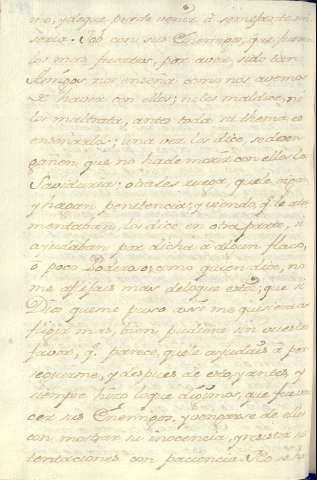 mo, y aſque puede venir à semejante mi
seria. Job con sus Enemigos, que fueron
los mas fuertes, por aver sido tan
Amigos, nos enseña como nos avemos
de haver con ellos; ni los maldice, ni
los maltrata, antes toda su thema es
enseñarlos; una vez los dice, se desen
gañen, que no ha de morir con ellos la
Savíduria; otra les ruega, que le oigan
y hagan penitencia; y viendo, q. le ator
mentaban, los dice en otra parte, si
ayudaban por dicha à algun flaco,
ó poco Poderoso; como quien dice, no
me aflijais mas de lo que estoi; que si
Dios que me puso asi me quisiera a
fligir mas, bien pudiera sin vuestro
favor, q. parece, que le ayudais à per
seguirme, y despues de esto, y antes, y
siempre hizo lo que diximos, que fue ven
cer sus Enemigos, y vengarse de ellos
con mostrar su inocencia, y resistir sus
tentaciones con paciencia. No se